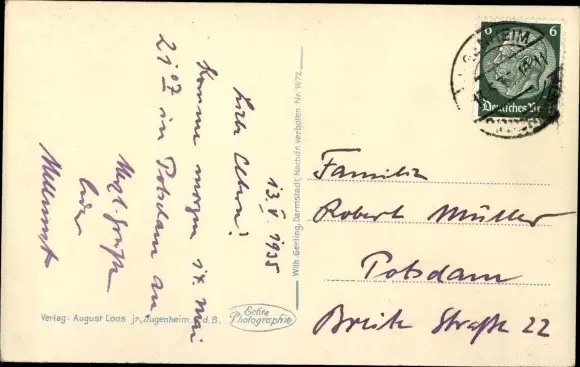 13. V. 1935
Liebe Eltern!
Komme morgen 14. Mai
21 07 in Potsdam an.
Herzl. Grüße
6
Deutsches Reich
Familie
Robert Müller
Potsdam
Breite Straße 22
Wilh. Gerling, Darmstadt, Nachdr. verboten. Nr. 1972
Verlag: August Loos jr., Jugenheim a. d. B.
Echte
Photographie